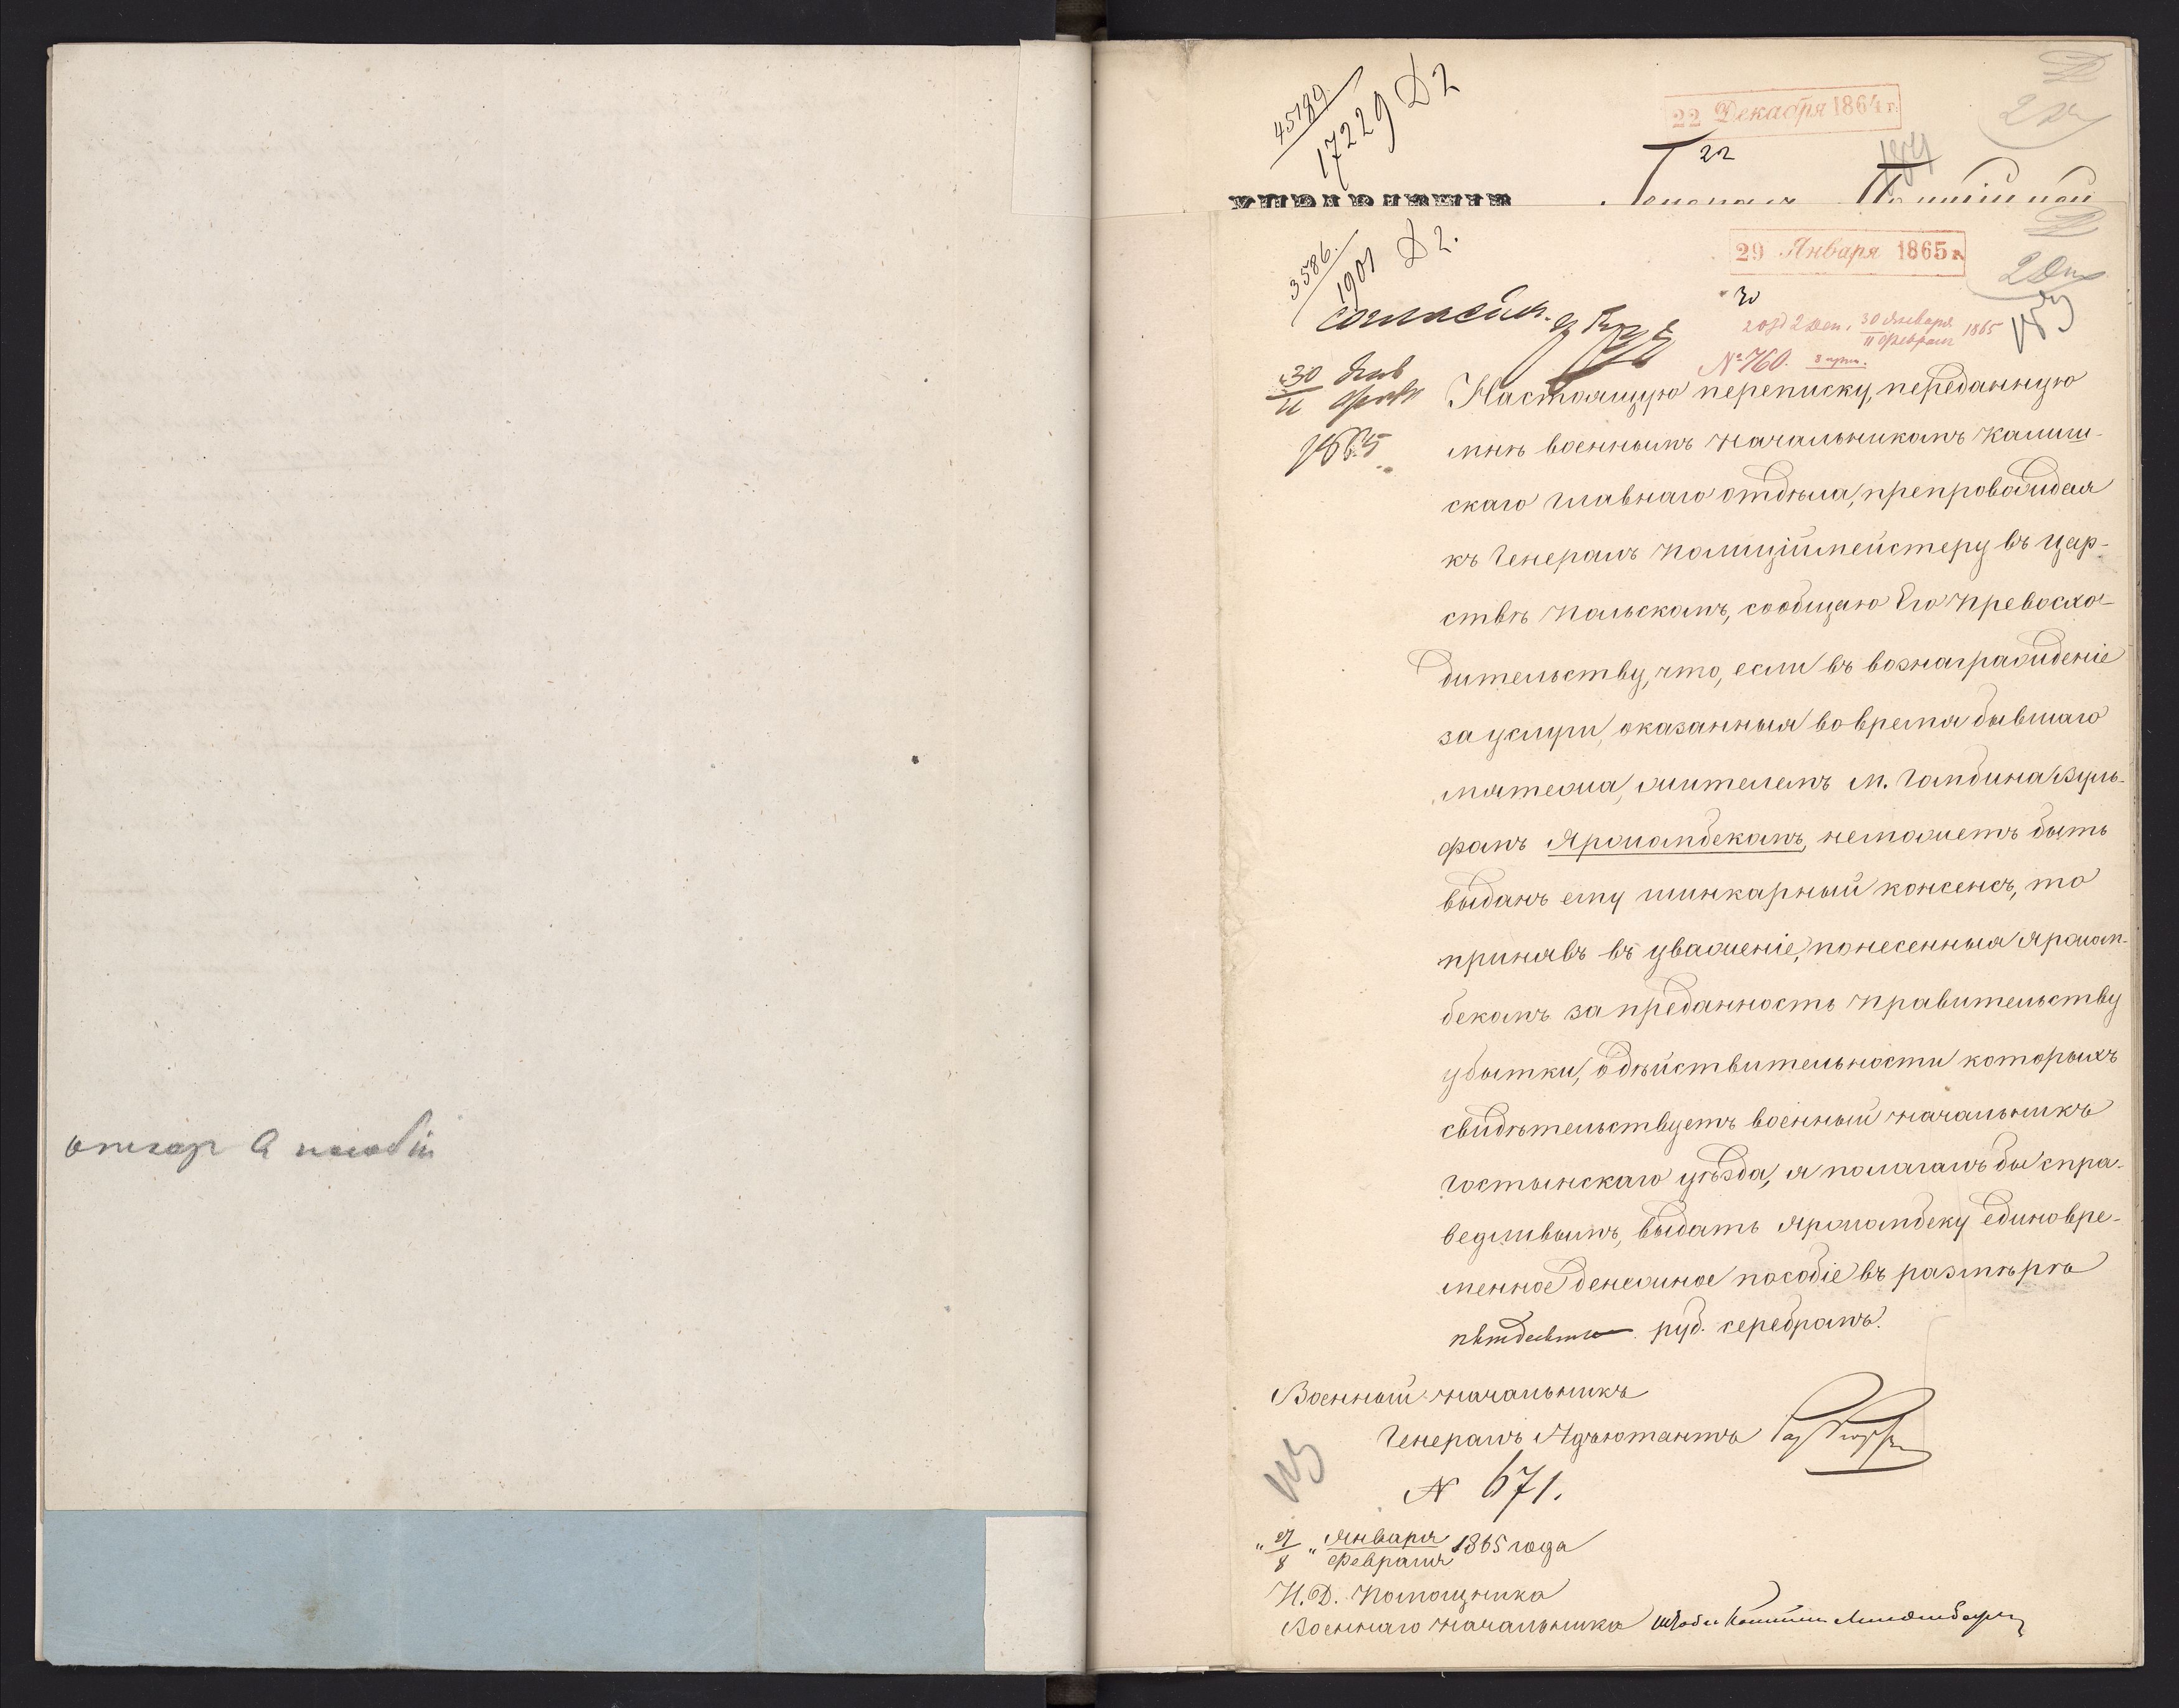 отгор о пособіи
45189
17229 Д2
22 Декабря 1864 г.
22
Генералъ Полиціймей
3586.
1901 Д 2.
29 Января 1865 г.
2 Отд 2 Деп. 30 Января / 11 Февраля 1865
№ 760. 3 прил.
Согласенъ.
30 Янв
11 Февр
1865
Настоящую переписку, переданную
мнѣ военнымъ начальникомъ Калиш-
скаго главнаго отдѣла, препровождая
къ Генералъ Полиціймейстеру въ Цар-
ствѣ Польскомъ, сообщаю Его Превосхо-
дительству, что, если въ вознагражденіе
за услуги, оказанныя во время бывшаго
мятежа, жителемъ м. Гомбина Вуль-
фомъ Яроломбекомъ, неможетъ быть
выданъ ему шинкарный консенсъ, то
принявъ въ уваженіе, понесенныя Яролом-
бекомъ за преданность Правительству
убытки, о дѣйствительности которыхъ
свидѣтельствуетъ военный начальникъ
Гостынскаго уѣзда, я полагалъ бы спра-
ведливымъ, выдать Яроломбеку единовре-
менное денежное пособіе въ размѣрѣ
пятдесять руб. серебромъ.
Военный начальникъ
Генералъ Адъютантъ
N 671.
"27/8" Января / Февраля 1865 года
И. Д. Помощника
Военнаго начальника Штабсъ Капитанъ